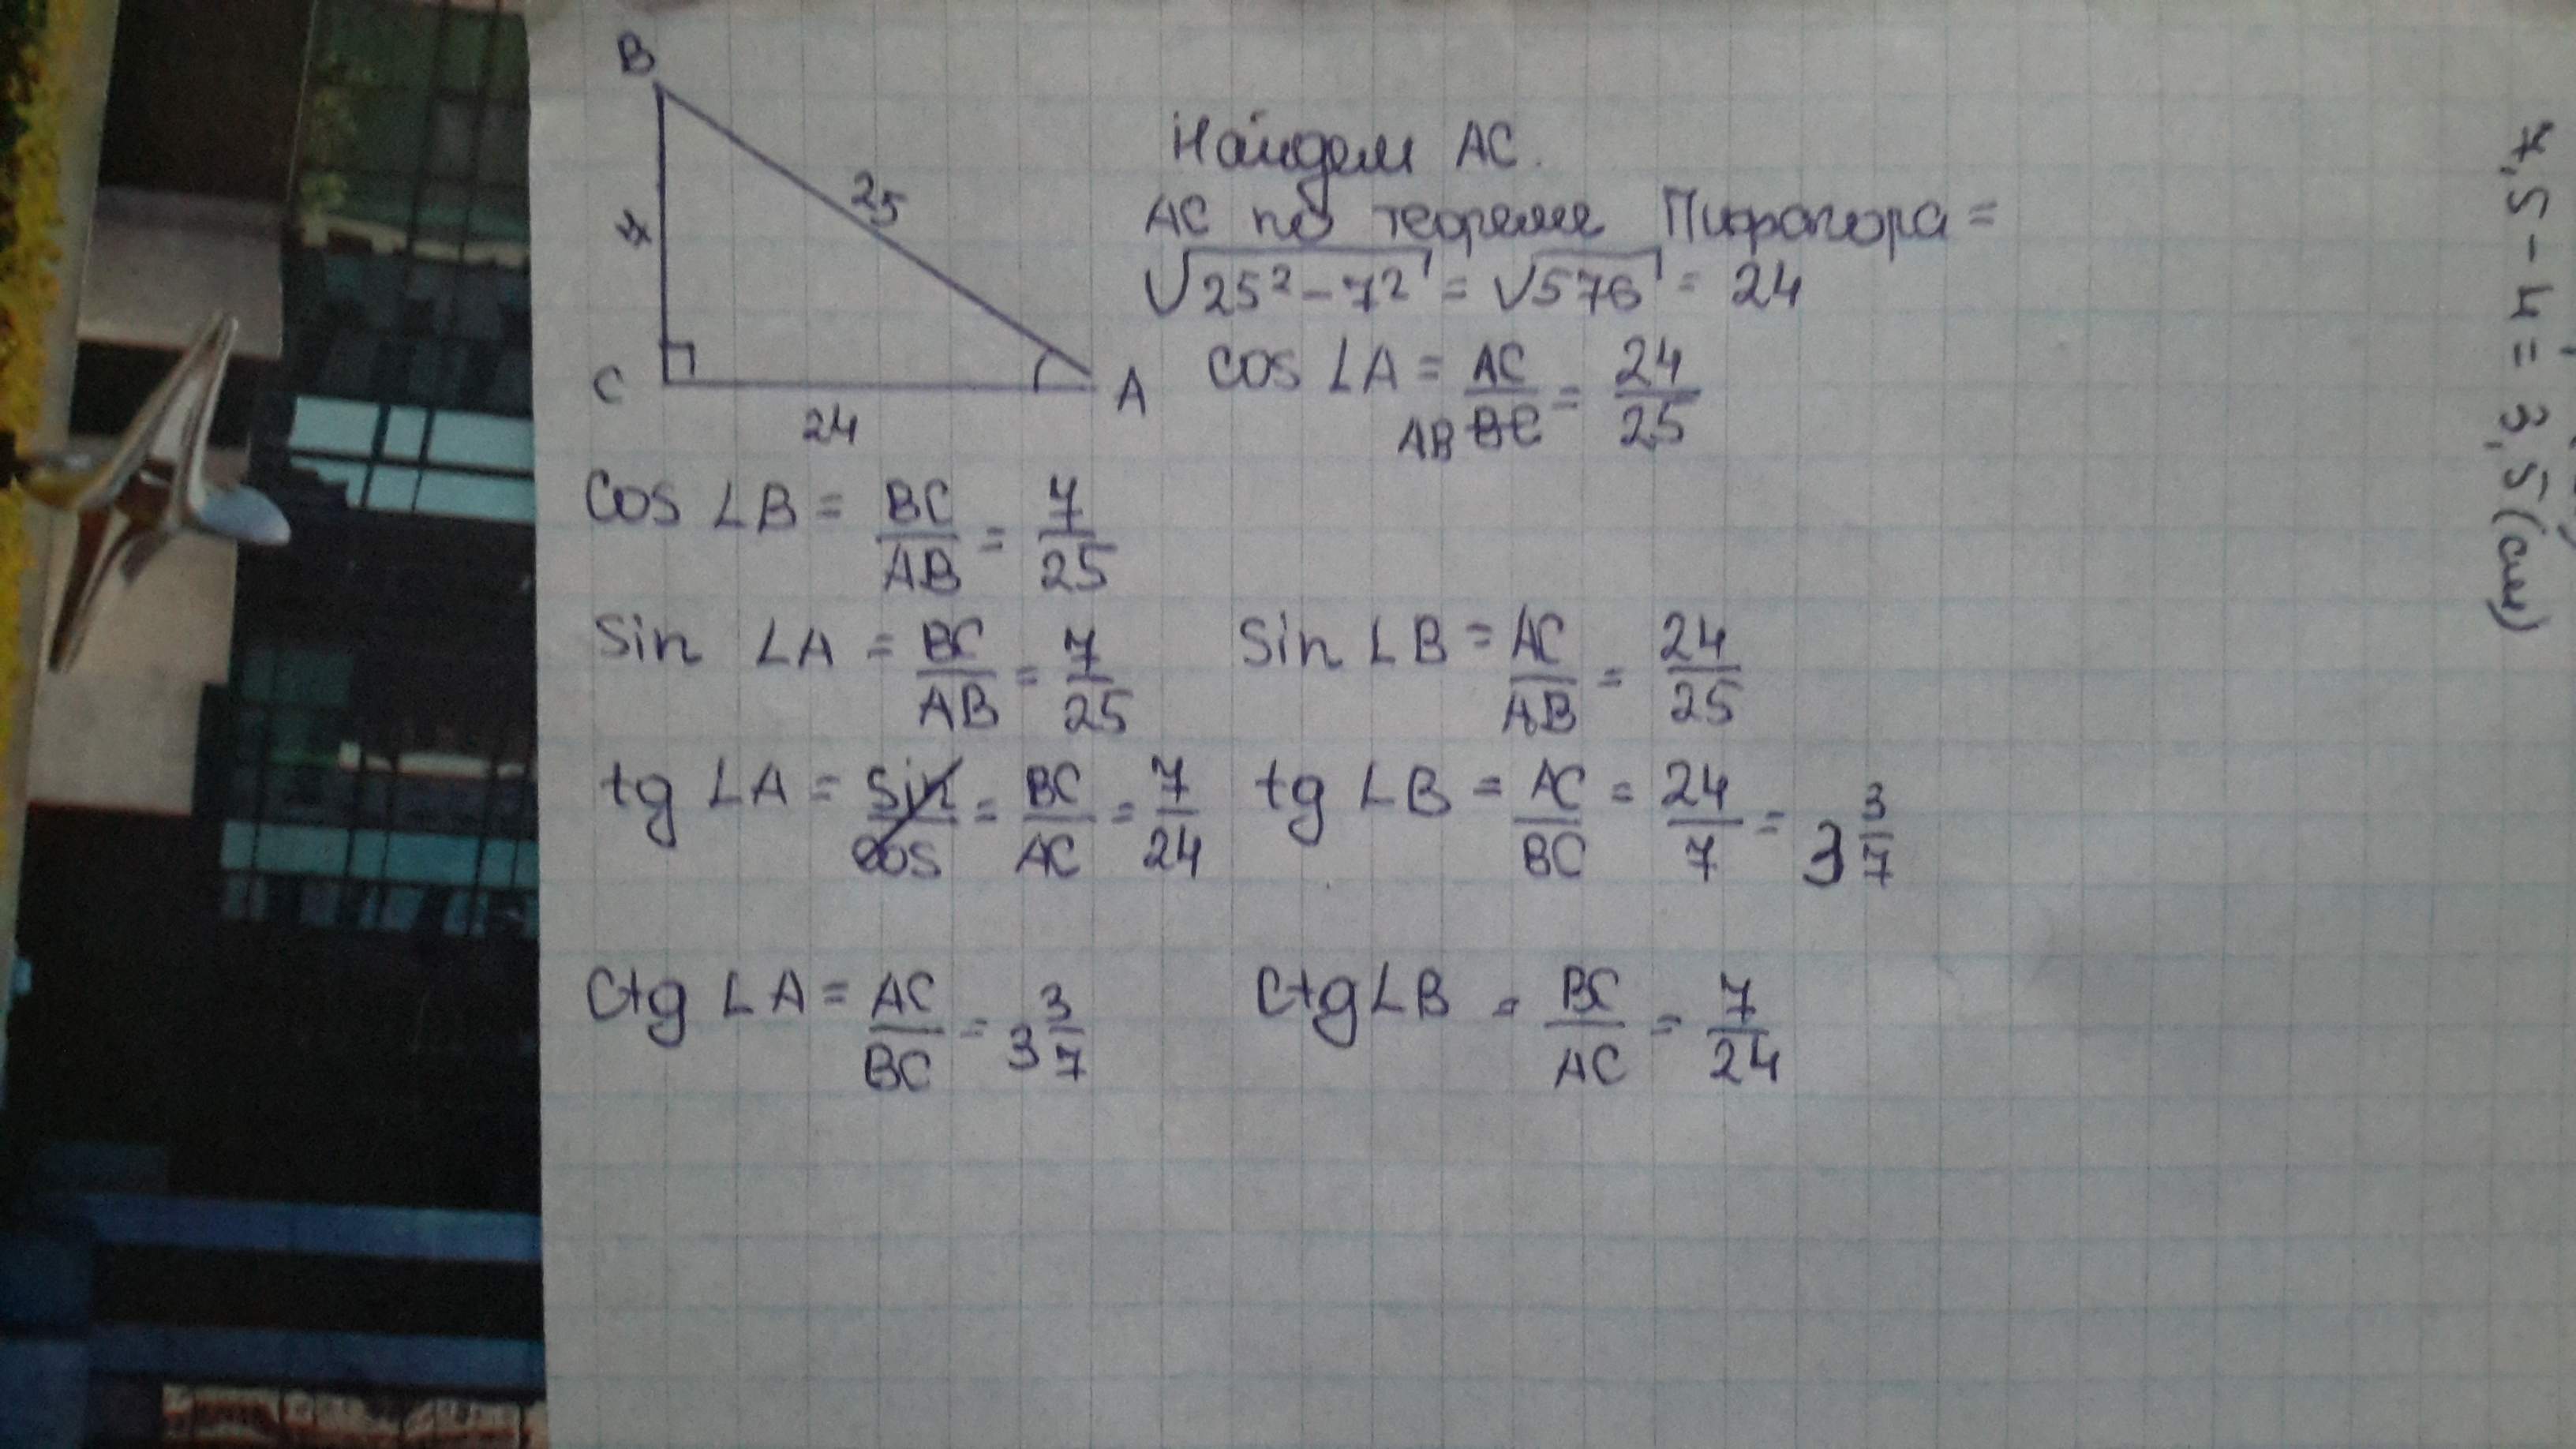 B
25
7
C
A
24
Найдем AC.
AC по теореме Пифагора =
√25² - 7² = √576 = 24
cos ∠A = AC/AB BC = 24/25
Cos ∠B = BC/AB = 7/25
Sin ∠A = BC/AB = 7/25 Sin ∠B = AC/AB = 24/25
tg ∠A = Sin/cos = BC/AC = 7/24 tg ∠B = AC/BC = 24/7 = 3 3/7
Ctg ∠A = AC/BC = 3 3/7 Ctg ∠B = BC/AC = 7/24
7,5 - 4 = 3,5 (см)